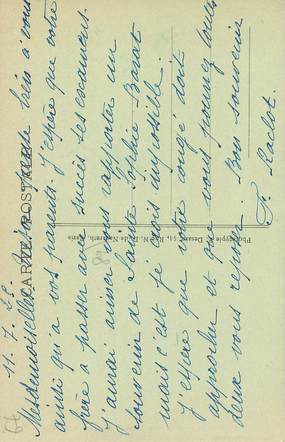 11. 7. 25.
Mesdemoiselles. Je pense bien à vous
ainsi qu'à vos parents. J'espère que votre
frère a passer avec succès ses examens.
J'aurai aimer vous rapporter un
souvenir de Sainte Sophie Barat
mais c'est je crois impossible.
J'espère que votre congé doit
approcher et que vous pourrez tous
deux vous reposer. Bon souvenir
F. Roclot.
CARTE POSTALE
Phototypie A. Dessaint, 53, Rue N.-D. de Nazareth, Paris